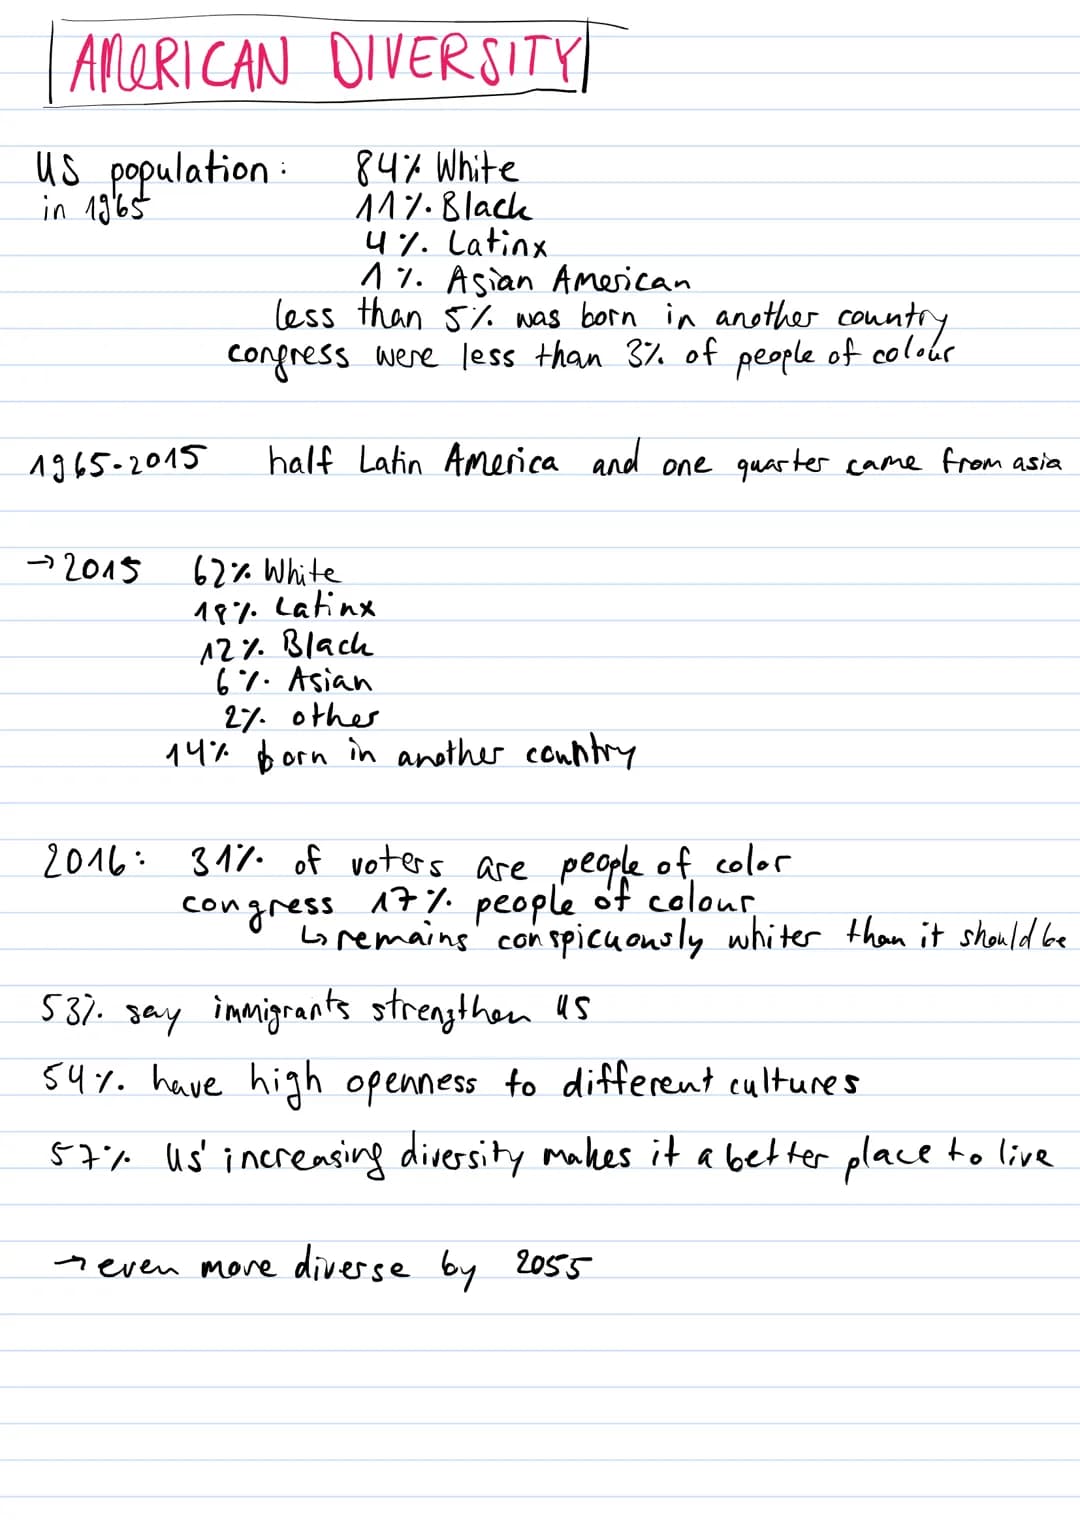 AMERICAN DIVERSITY
US population: 84% White
in 1965 11% Black
4% Latinx
1% Asian American
less than 5% was born in another country
congress were less than 3% of people of colour
1965-2015 half Latin America and one quarter came from asia
→ 2015 62% White
18% Latinx
12% Black
6% Asian
2% other
14% born in another country
2016: 31% of voters are people of color
congress 17% people of colour
↳ remains conspicuously whiter than it should be
53% say immigrants strengthen US
54% have high openness to different cultures
57% US' increasing diversity makes it a better place to live
→ even more diverse by 2055